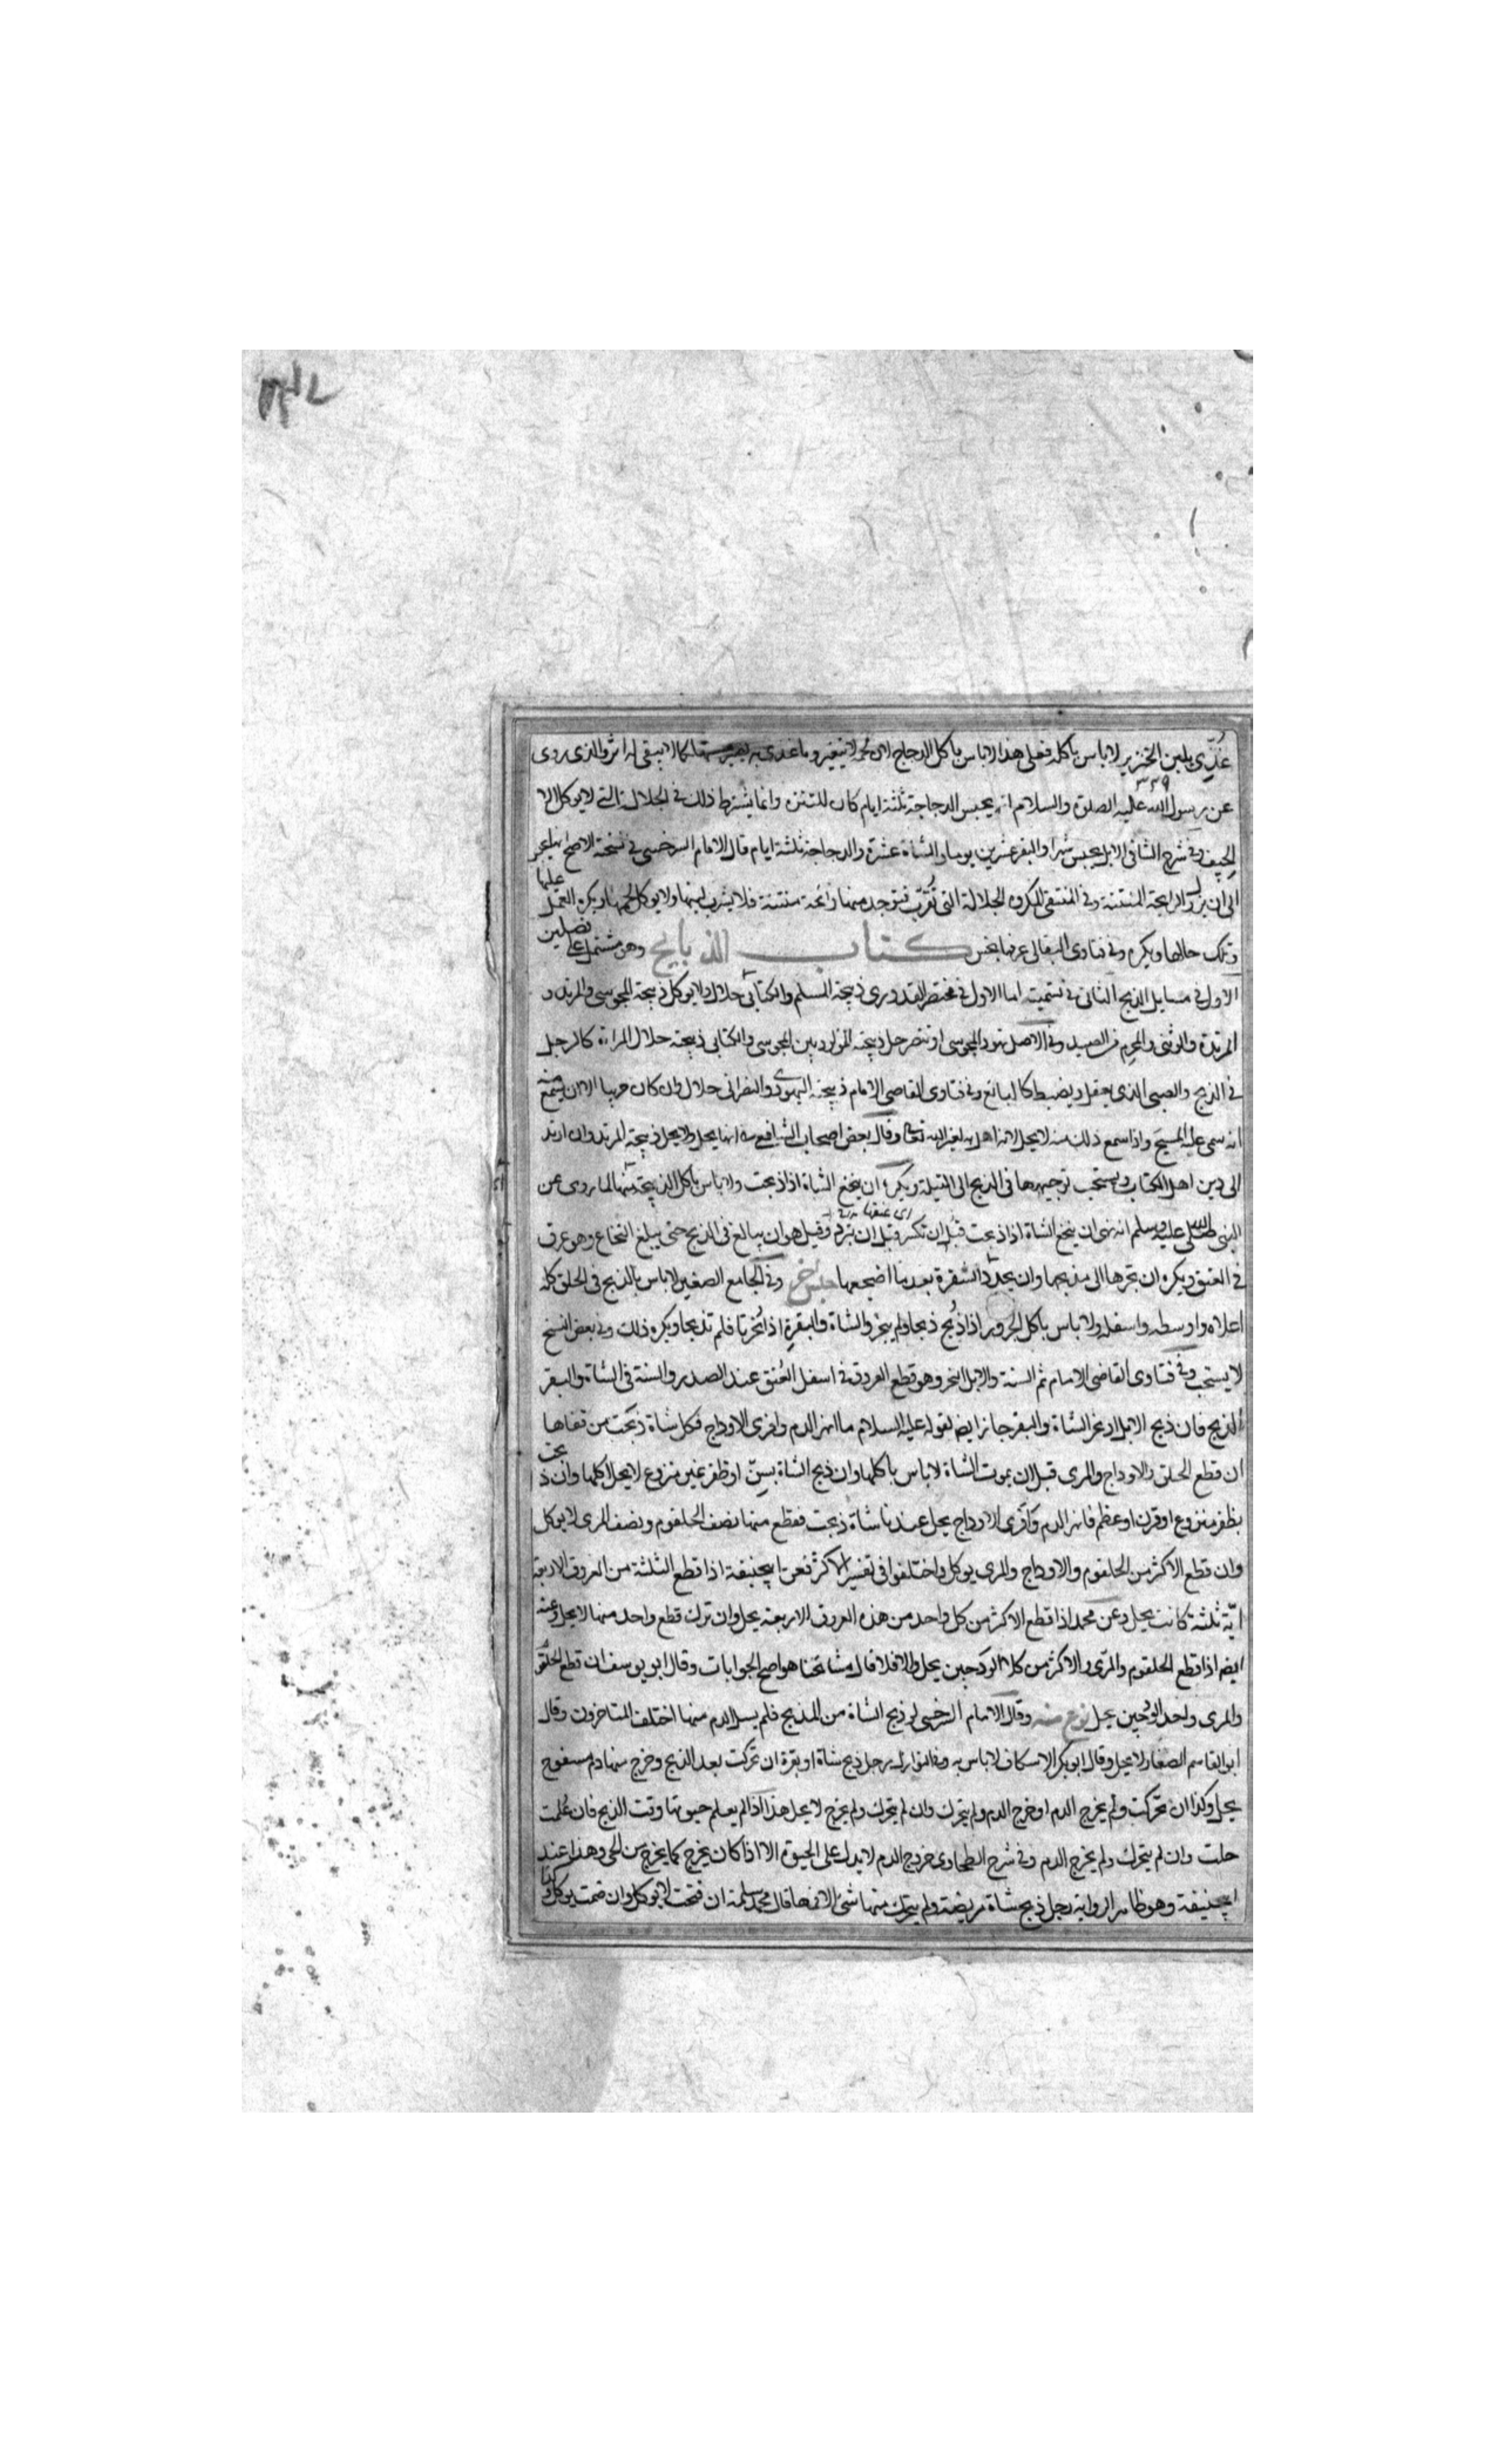 غُذِّى بلبن الخنزير لاباس باكله فعلى هذا لاباس باكل الدجاج لان لحمه لا يتغير وما غذى به يصير مستهلكا لا يبقى له اثر والذى روى
٣٣٩
عن رسول الله عليه الصلوة والسلام انه يحبس الدجاجة ثلثة ايام كان للتنزه وانما يشترط ذلك فى الجلالة التى لا يوكل الا
الجيف وفى شرح الشافى الابل يحبس شهرا والبقر عشرين يوما والشاة عشرة والدجاجة ثلثة ايام قال الامام السرخسى فى نسخة الاصح انها يحبس
الى ان يزول الرايحة المنتنة وفى المنتقى المكروه الجلالة التى اذا قربت توجد منها رائحة منتنة فلا يشرب لبنها ولا يوكل لحمها ويكره العمل عليها
وتلك حالها ويكره وفى فتاوى البقالى عرقها نجس كتاب الذبايح وهو مشتمل على فصلين
الاول فى مسايل الذبح الثانى فى تسميته اما الاول فى مختصر القدورى ذبيحة المسلم والكتابى حلال ولا يوكل ذبيحة المجوسى والمرتد و
المرتدة والوثنى والمحرم من الصيد وفى الاصل تهود المجوسى او تنصر حل ذبيحته المولود بين المجوسى والكتابى ذبيحته حلال المراة كالرجل
فى الذبح والصبى الذى يعقل ويضبط كالبالغ وفى فتاوى القاضى الامام ذبيحة اليهودى والنصرانى حلال وان كان حربيا الا ان يسمع منه
انه سمى عليه المسيح واذا سمع ذلك منه لا يحل لانه اهل به لغير الله تعالى وقال بعض اصحاب الشافعى انها يحل ولا يحل ذبيحة المرتد وان ارتد
الى دين اهل الكتاب ويستحب توجيهها فى الذبح الى القبلة ويكره ان ينخع الشاة اذا ذبحت ولاباس باكل الذبيحة منها لما روى عن
اى عنقها
النبى صلى الله عليه وسلم انه نهى ان ينخع الشاة اذا ذبحت قبل ان تكسر وقبل ان تبرد وقيل هو ان يبالغ فى الذبح حتى يبلغ النخاع وهو عرق
فى العنق ويكره ان تجرها الى مذبحها وان يحد الشفرة بعد ما اضجعها جنس آخر وفى الجامع الصغير لاباس بالذبح فى الحلق كله
اعلاه واوسطه واسفله ولاباس باكل الجزور اذا ذُبح ذبحا ولم ينحر والشاة والبقرة اذا نُحرتا فلم تذبحا ويكره ذلك وفى بعض النسخ
لا يستحب وفى فتاوى القاضى الامام ثم السنة والابل النحر وهو قطع العروق فى اسفل العُنق عند الصدر والسنة فى الشاة والبقر
الذبح فان ذبح الابل او نحر الشاة والبقر جاز ايضا لقوله عليه السلام ما انهر الدم وافرى الاوداج فكل شاة ذبحت من قفاها
ان قطع الحلق والاوداج والمرى قبل ان يموت الشاة لاباس باكلها وان ذبح الشاة بسِنّ او ظفر غير منزوع لا يحل اكلها وان ذبحت
بظفر منزوع او قرن او عظم فانهر الدم وافرى الاوداج يحل عندنا شاة ذبحت فقطع منها نصف الحلقوم ونصف المرى لا يوكل
وان قطع الاكثر من الحلقوم والاوداج والمرى يوكل واختلفوا فى تفسير الاكثر فعن ابيحنيفة اذا قطع الثلثة من العروق الاربعة
ايّة ثلثة كانت يحل وعن محمد اذا قطع الاكثر من كل واحد من هذه العروق الاربعة يحل وان ترك قطع واحد منها لا يحل وعنه
ايضا اذا قطع الحلقوم والمرى والاكثر من كل الودجين يحل والا فلا قال مشائخنا هو اصح الجوابات وقال ابو يوسف ان قطع الحلقوم
والمرى واحد الودجين يحل نوع منه وقال الامام السرخسى لو ذبح الشاة من المذبح فلم يسل الدم منها اختلف المتاخرون وقال
ابو القاسم الصفار لا يحل وقال ابو بكر الاسكاف لاباس به وفى النوازل رجل ذبح شاة او بقرة ان تحركت بعد الذبح وخرج منها دم مسفوح
يحل وكذا ان تحركت ولم يخرج الدم او خرج الدم ولم يتحرك وان لم يتحرك ولم يخرج لا يحل هذا اذا لم يعلم حيوتها وقت الذبح فان عُلمت
حلت وان لم يتحرك ولم يخرج الدم وفى شرح الطحاوى خروج الدم لا يدل على الحيوة الا اذا كان يخرج كما يخرج من الحى وهذا عند
ابيحنيفة وهو ظاهر الرواية رجل ذبح شاة مريضة ولم يتحرك منها شئ الا فمها قال محمد بن سلمة ان فتحت لا يوكل وان ضمت يوكل وكذا